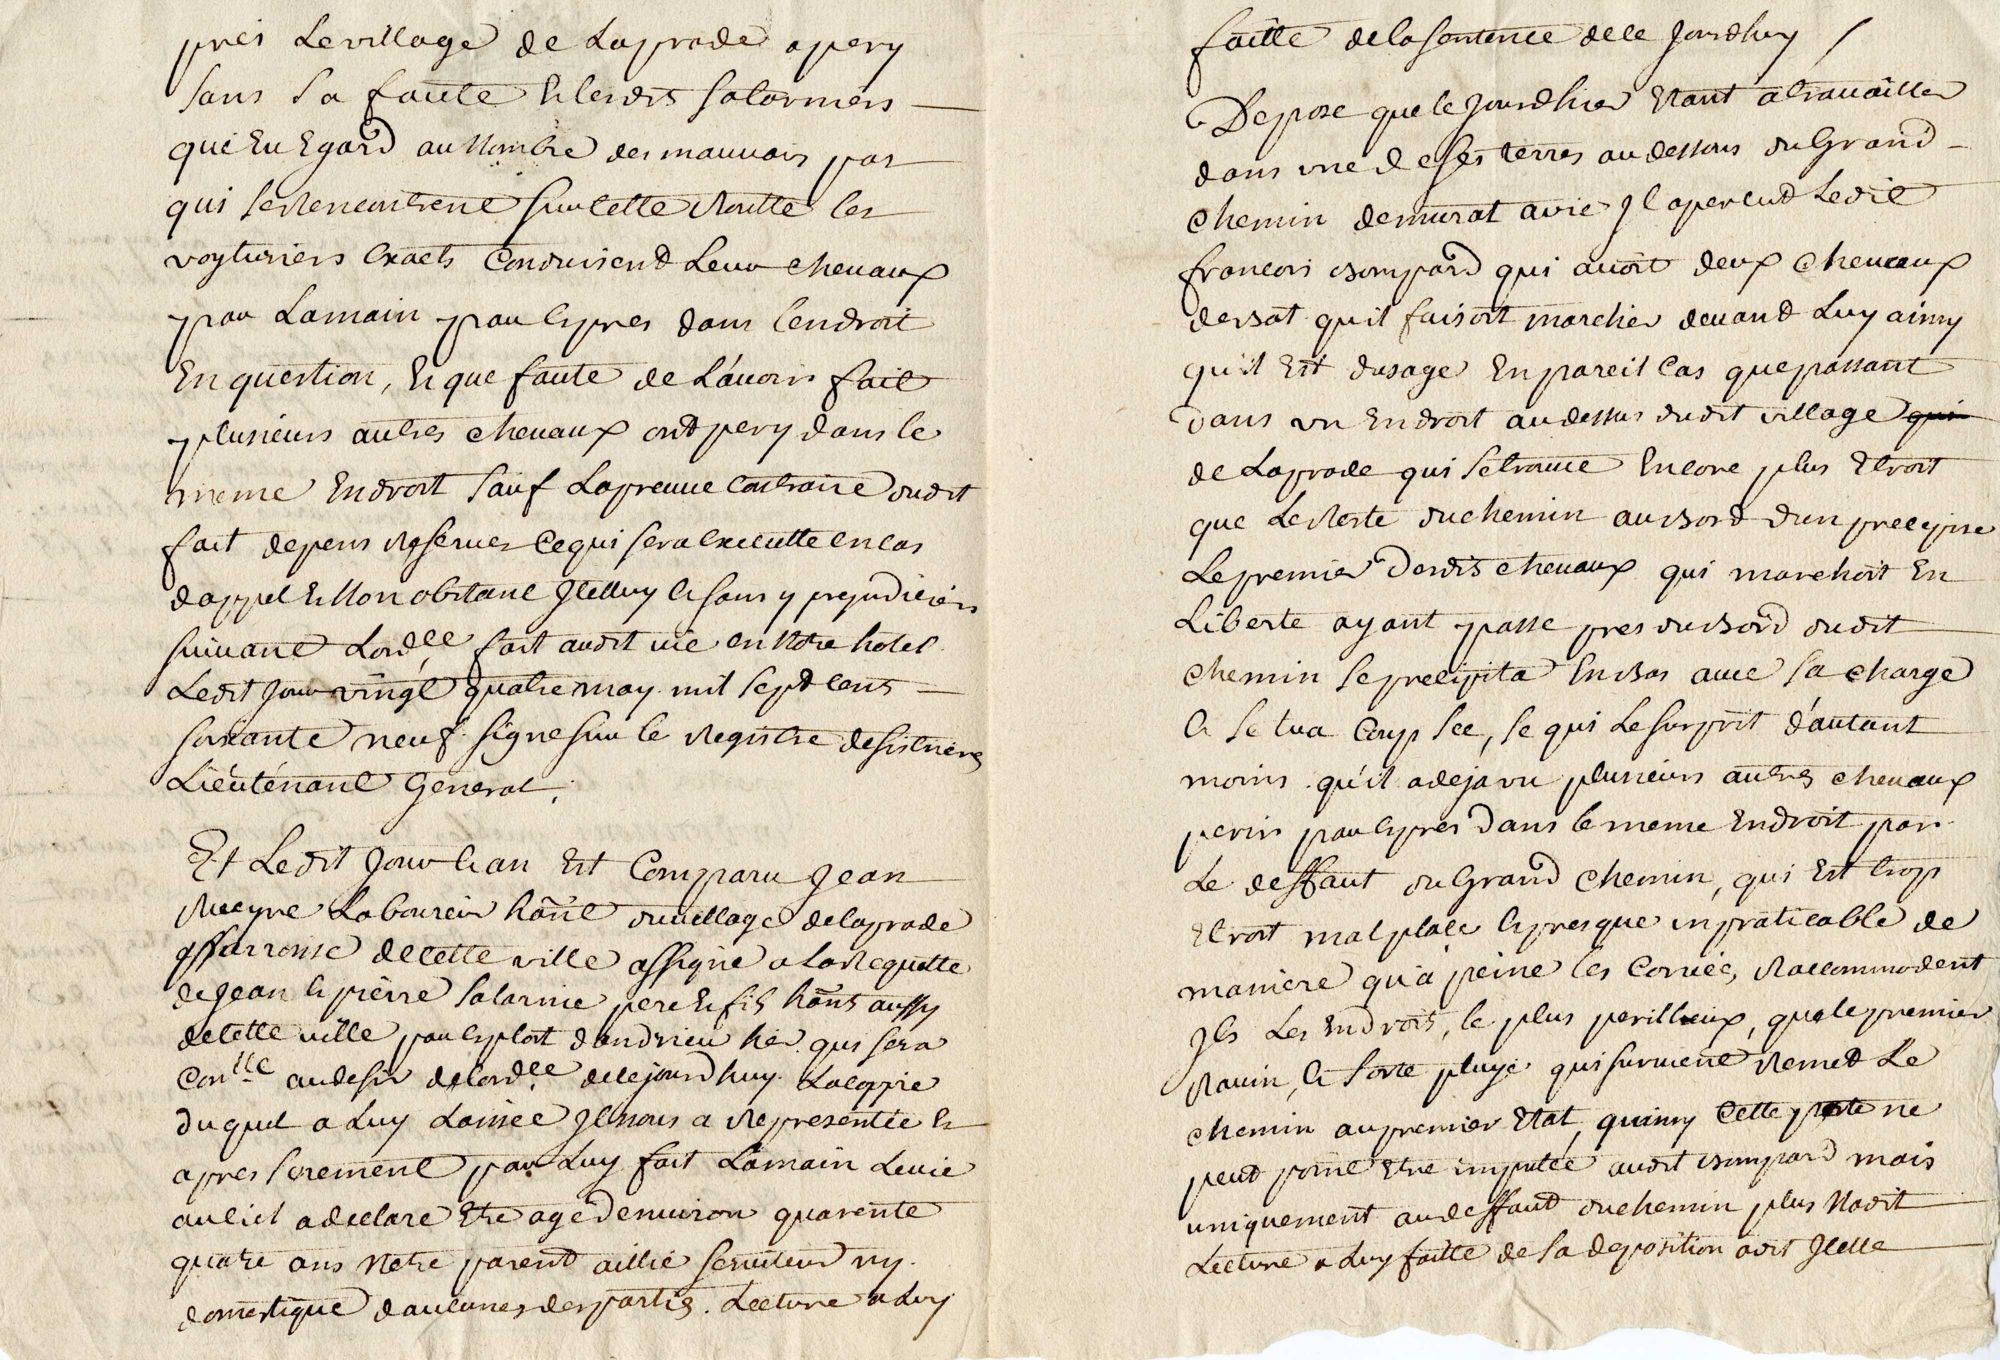 près Le village de Laprade a pery
sans Sa faute Et lesdits Salarniers
que Eu Egard au Nombre des mauvais pas
qui se Rencontrent sur Cette Routte les
voyturiers Exacts Conduisend Leur chevaux
par Lamain par Expres dans lendroit
En question, Et que faute de L'avoir fait
plusieurs autres chevaux ond pery dans le
meme Endroit Sauf La preuve Contraire dudit
fait depens Reserves Ce qui sera Executte en cas
dappel Et Non obstant Icelluy Et sans y prejudicier
suivant Lordce fait audit vic en Notre hotel
Ledit Jour vingt quatre may mil Sept Cens
soixante neuf. Signe sur le Registre de Sistrieres
Lieutenant General.
Et Ledit Jour Et an Est Comparu Jean
Laboureur habnt du village de laprade
parroisse de Cette ville assigne a la Requette
de Jean Et pierre Salarnie pere Et fils habnts aussy
de Cette ville par Exploit dandrieu her qui sera
Conlle au desir de lordce de ce jourdhuy La coppie
Duquel a Luy Laissee Il nous a Representée Et
apres serement par Luy fait Lamain Levée
au Ciel a declare Etre age Denviron quarente
quatre ans Netre parend aillie serviteur ny
domestique daucunes des parties. Lecture a Luy
faitte de la Sentence de Ce Jourdhuy /
Depose que le Jourdhier Etant a travailler
dans une de Ses terres au dessous du Grand
chemin de murat a vic Il apercud Ledit
francois Bompard qui avoit deux chevaux
de Bat qu'il faisoit marcher devand Luy ainsy
qu'il Est dusage En pareil Cas que passant
Dans un Endroit au dessus dudit village qui
de Laprade qui Se trouve Encore plus Etroit
que Le Reste du chemin au Bord d'un precipise
Le premier Desdits chevaux qui marchoit En
Liberte ayant passe pres du Bord dudit
chemin Se precipita En Bas avec Sa charge
Et Se tua Coup Sec, Se qui Le Surprit d'autant
moins qu'il a deja vu plusieurs autres chevaux
perir par Expres Dans le meme Endroit par
Le deffaut du Grand chemin, qui Est trop
Etroit mal place Et presque inpraticable de
maniere qu'a peine les Corvées, Raccommodent
Ils Les Endroits, le plus perilleux, que le premier
Ravin, Et forte pluye qui survient Remet Le
chemin au premier Etat, qu'ainsy Cette perte ne
peut point Etre imputée audit Bompard mais
uniquement au deffaud du chemin plus Nadit
Lecture a Luy faitte de Sa deposition a dit Icelle